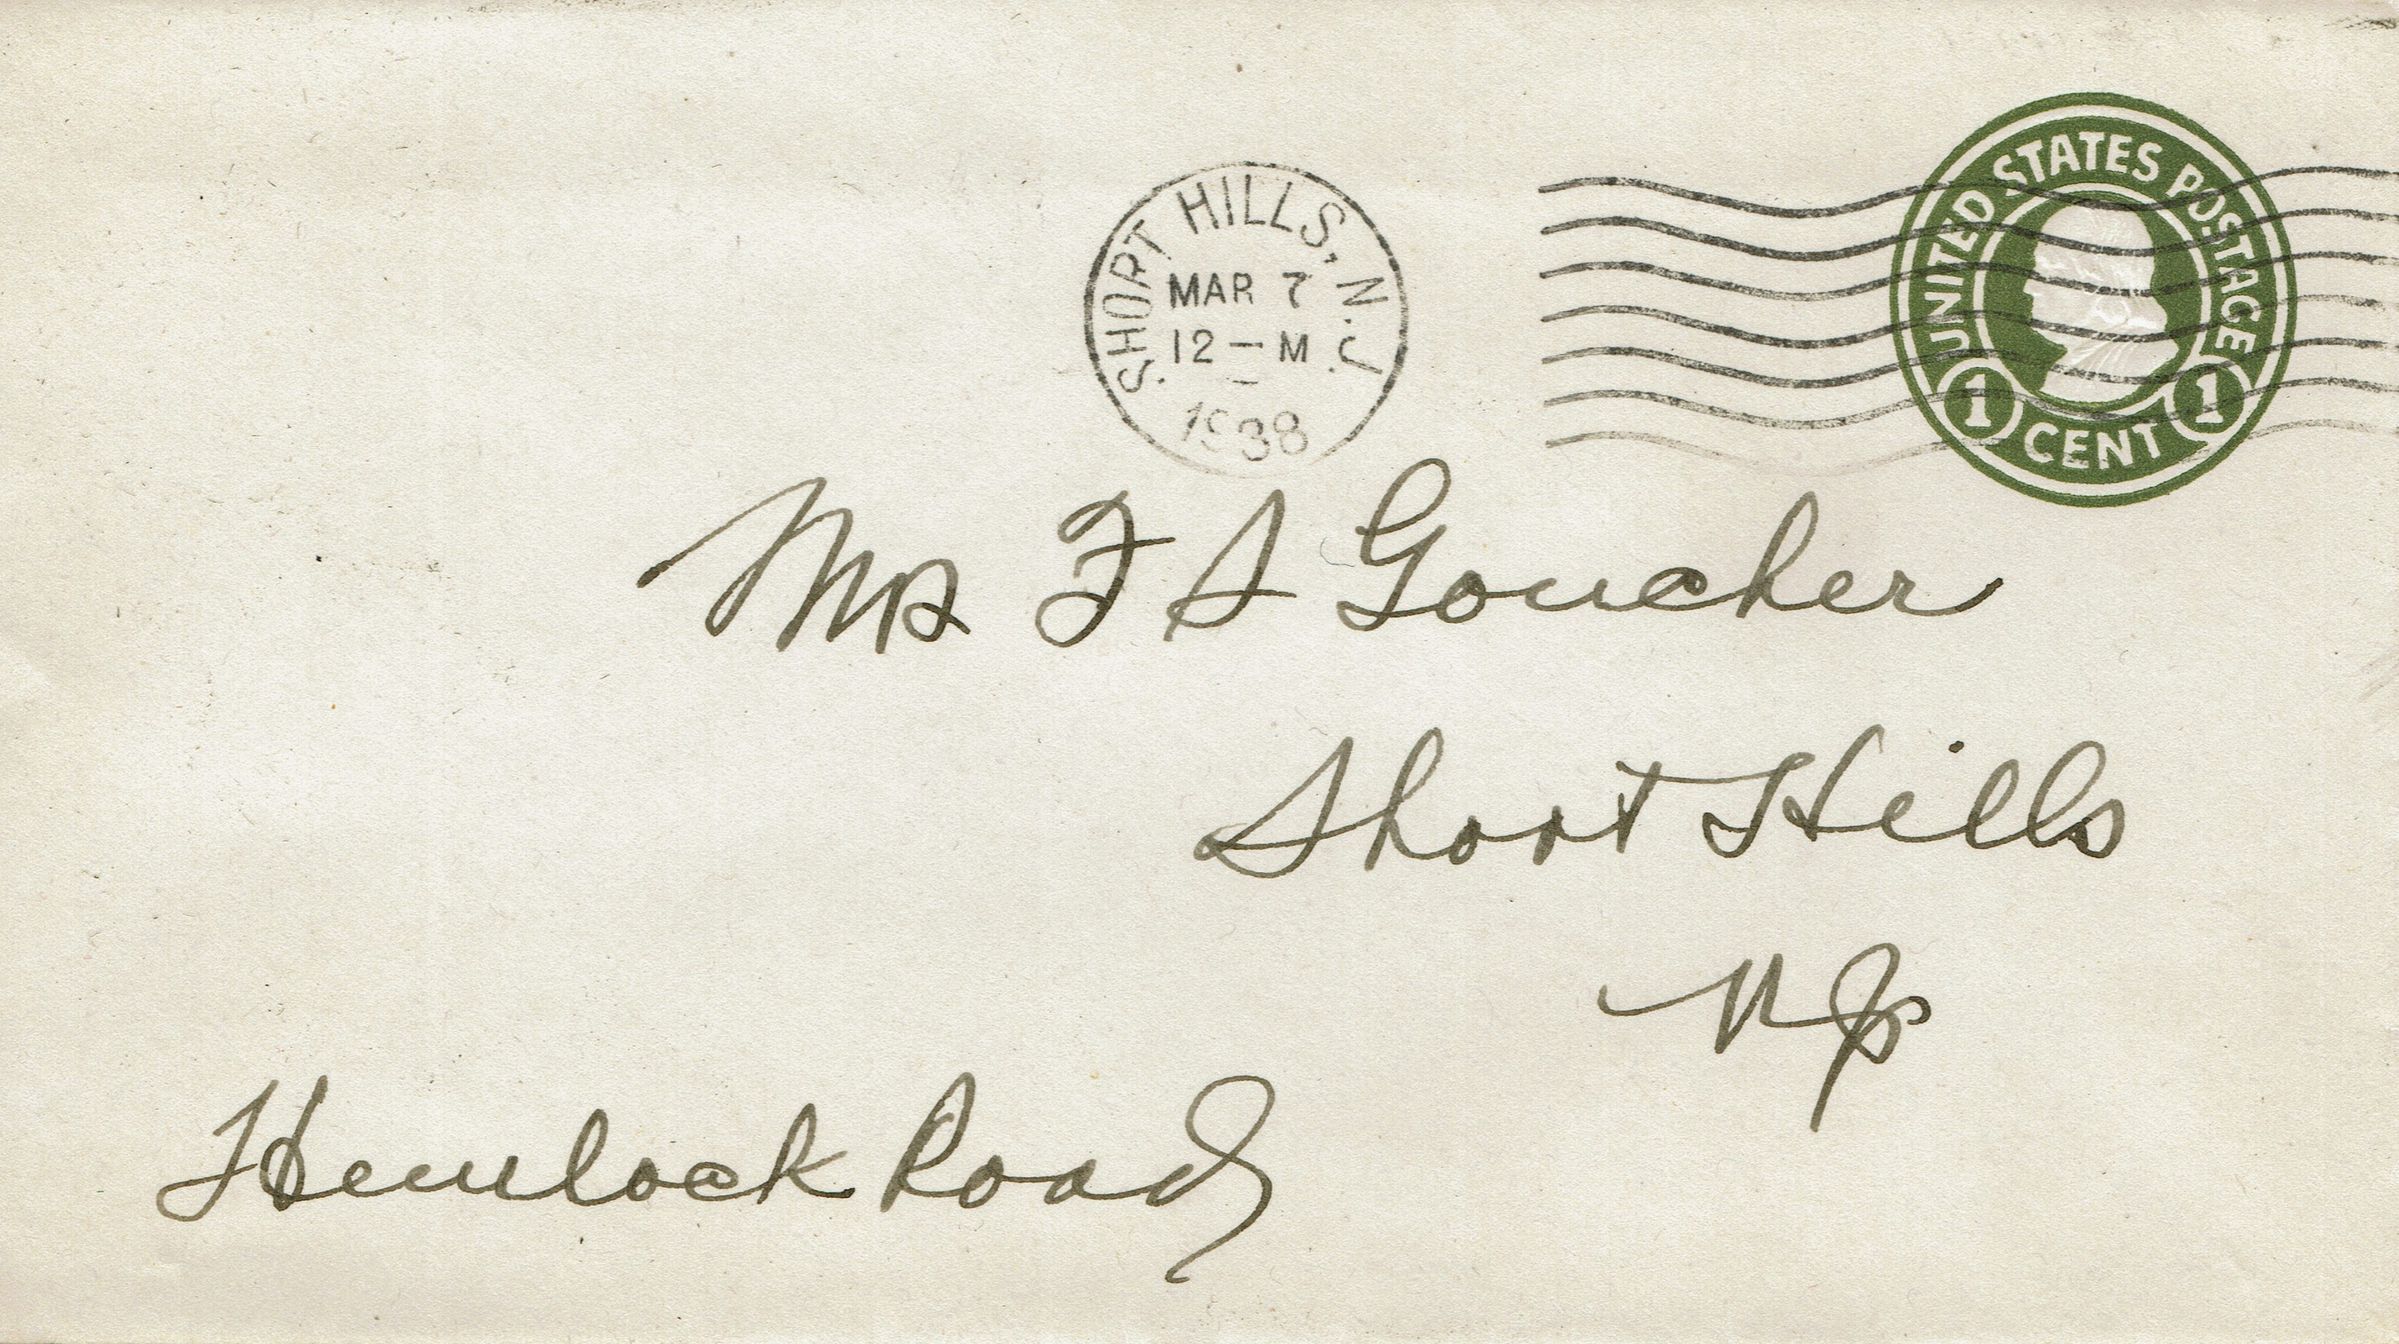 SHORT HILLS, N.J.
MAR 7
12 — M
1938
UNITED STATES POSTAGE
1 CENT 1
Mrs F S Goucher
Short Hills
NJ
Hemlock Road